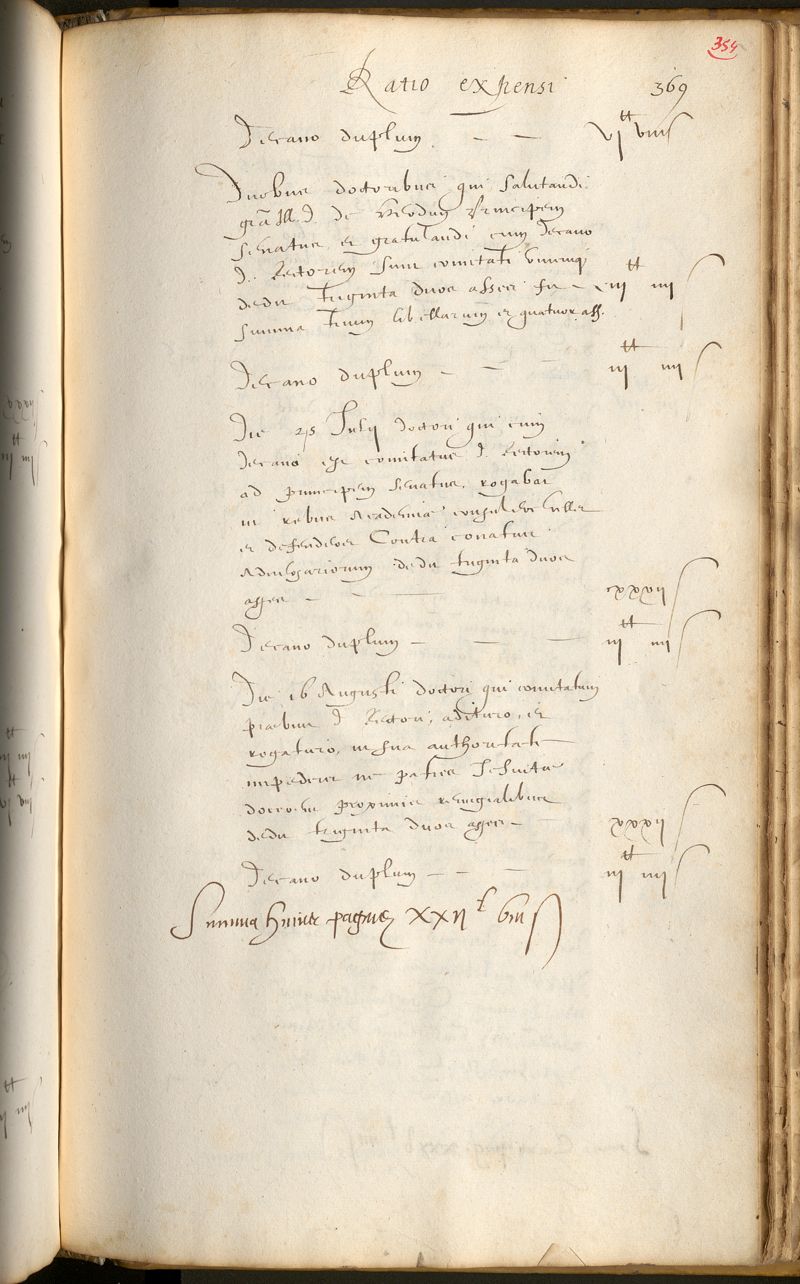 354
Ratio expensi 369
Decano duplum — — vj tt viij s
Duobus doctoribus qui salutandi
grã Ill. D. de Verdun Principem
senatus et gratulandi cum Decano
D. Rectorem sunt comitati unicuiq
dedi triginta duos asses fit iij tt iiij s
summa trium libellarum et quatuor ass.
Decano duplum — — — iij tt iiij s
Die 25 Julij doctori qui cum
Decano est comitatus D. Rectorem
ad principem senatus, rogabat
in rebus Academiae consulere vellet
et defenderet Contra conatus
Adversariorum dedi triginta duos
asses — — xxxij s
Decano duplum — — — iij tt iiij s
Die 16 Augusti doctori qui comitatum
praebuit D Rectori, adituro, et
rogaturo, in sua authoritate
impediret ne patres Jesuitae
docerent proximis remigialibus
dedi triginta duos asses — xxxij s
Decano duplum — — — iij tt iiij s
Summa huius paginae XXII l viij s